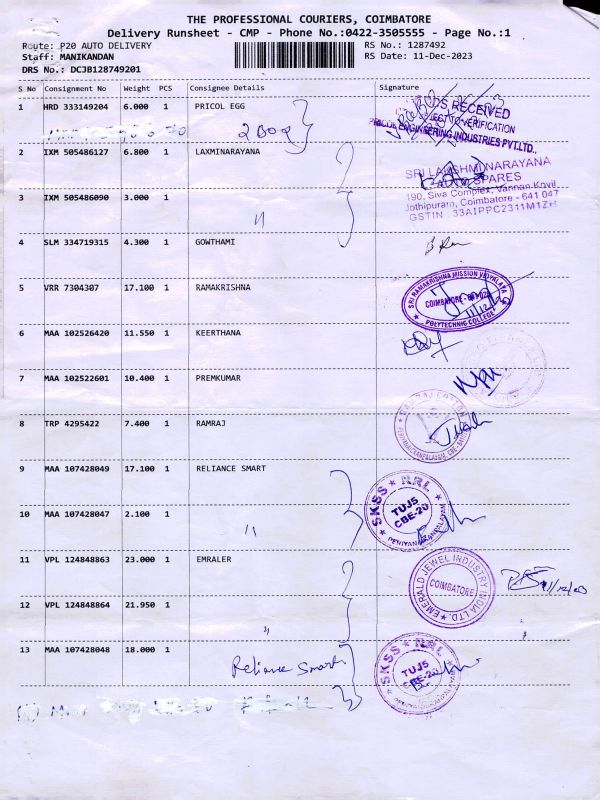 THE PROFESSIONAL COURIERS, COIMBATORE
Delivery Runsheet - CMP - Phone No.:0422-3505555 - Page No.:1
Route: P20 AUTO DELIVERY RS No.: 1287492
Staff: MANIKANDAN RS Date: 11-Dec-2023
DRS No.: DCJB128749201
S No Consignment No Weight PCS Consignee Details Signature
1 HRD 333149204 6.000 1 PRICOL EGG
GOODS RECEIVED
SUBJECT TO VERIFICATION
PRICOL ENGINEERING INDUSTRIES PVT.LTD.,
2 BOX
2 IXM 505486127 6.800 1 LAXMINARAYANA
SRI LAKSHMI NARAYANA
AUTO SPARES
190, Siva Complex, Vannan Kovil,
Jothipuram, Coimbatore - 641 047
GSTIN : 33AIPPC2311M1ZH
3 IXM 505486090 3.000 1
〃
4 SLM 334719315 4.300 1 GOWTHAMI
5 VRR 7304307 17.100 1 RAMAKRISHNA
SRI RAMAKRISHNA MISSION VIDYALAYA
COIMBATORE - 641 020
POLYTECHNIC COLLEGE
6 MAA 102526420 11.550 1 KEERTHANA
7 MAA 102522601 10.400 1 PREMKUMAR
8 TRP 4295422 7.400 1 RAMRAJ
9 MAA 107428049 17.100 1 RELIANCE SMART
SKSS ★ RRL ★
TUJ5
CBE-20
PERIYANAICKANPALAYAM
10 MAA 107428047 2.100 1
〃
11 VPL 124848863 23.000 1 EMRALER
EMERALD JEWEL INDUSTRY INDIA LTD. ★
COIMBATORE
12 VPL 124848864 21.950 1
〃
13 MAA 107428048 18.000 1
Reliance Smart
SKSS ★ RRL ★
TUJ5
CBE-20